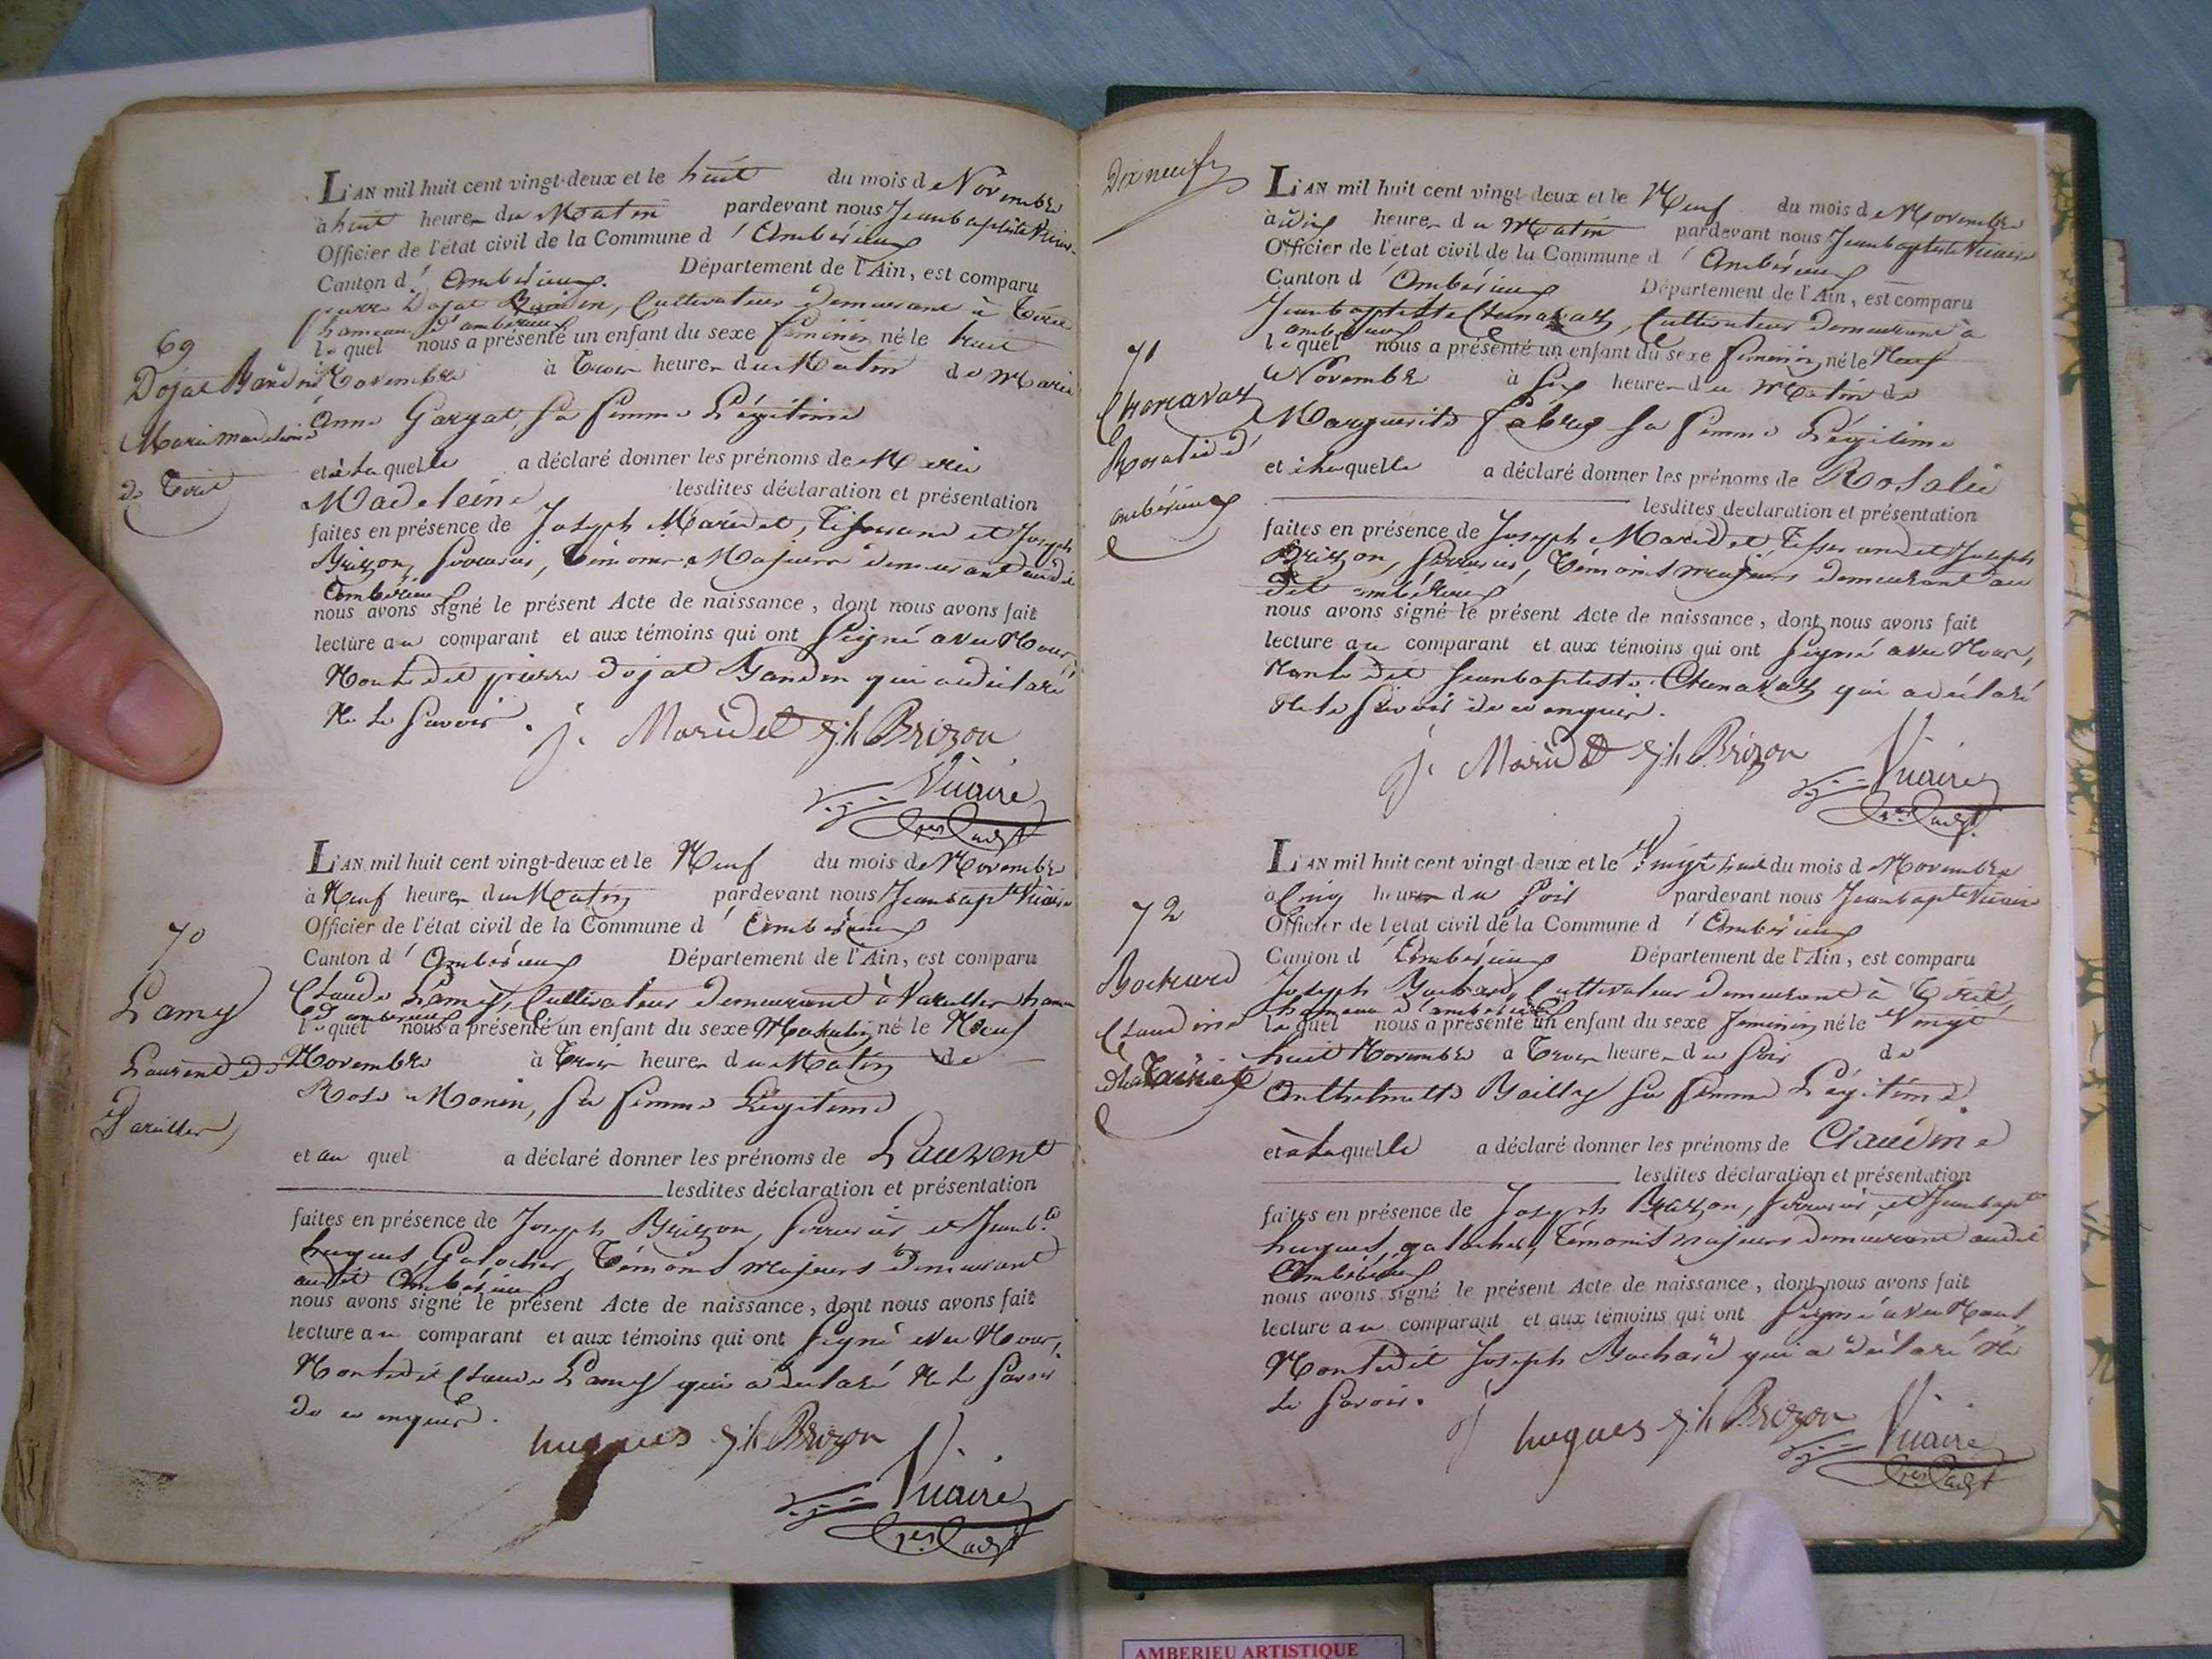 L'AN mil huit cent vingt-deux et le huit du mois de Novembre
à huit heures du Matin pardevant nous Jeanbaptiste Vicaire
Officier de l'état civil de la Commune d'Ambérieux
Canton d'Ambérieux. Département de l'Ain, est comparu
pierre Dojat Bandin, Cultivateur demeurant à Tiret
hameau d'ambérieux
lequel nous a présenté un enfant du sexe féminin né le huit
Novembre à trois heures du Matin de Marie
Anne Gargat, sa femme Légitime
et à laquelle a déclaré donner les prénoms de Marie
Madeleine lesdites déclaration et présentation
faites en présence de Joseph Maridet, Tisserand et Joseph
Brizon, serrurier, témoins Majeurs demeurant audit
Ambérieux
nous avons signé le présent Acte de naissance, dont nous avons fait
lecture au comparant et aux témoins qui ont signé avec Nous,
Non ledit pierre dojat Bandin qui a déclaré
Ne le savoir.
j. Maridet jh Brizon
Vicaire
69
Dojat Bandin
Marie madeleine
de Tiret
L'AN mil huit cent vingt-deux et le Neuf du mois de Novembre
à Neuf heures du Matin pardevant nous Jeanbapte Vicaire
Officier de l'état civil de la Commune d'Ambérieux
Canton d'Ambérieux Département de l'Ain, est comparu
Claude Lamy, Cultivateur demeurant à Vareilles hameau
d'ambérieux
lequel nous a présenté un enfant du sexe Masculin né le Neuf
Novembre à trois heures du Matin de
Rose Monin, sa femme Légitime
et au quel a déclaré donner les prénoms de Laurent
lesdites déclaration et présentation
faites en présence de Joseph Brizon, serrurier et Jeanb.te
hugues, Galocher, témoins majeurs demeurant
audit Ambérieux
nous avons signé le présent Acte de naissance, dont nous avons fait
lecture au comparant et aux témoins qui ont signé avec Nous,
Non ledit Claude Lamy qui a déclaré Ne le savoir
de ce enquis.
hugues jh Brizon
Vicaire
70
Lamy
Laurent de
Vareilles
Dixneuf
L'AN mil huit cent vingt-deux et le Neuf du mois de Novembre
à dix heures du Matin pardevant nous Jeanbaptiste Vicaire
Officier de l'état civil de la Commune d'Ambérieux
Canton d'Ambérieux Département de l'Ain, est comparu
Jeanbaptiste Chenavaz, Cultivateur demeurant à
ambérieux
lequel nous a présenté un enfant du sexe féminin né le Neuf
Novembre à six heures du Matin de
Marguerite Fabry sa femme Légitime
et à laquelle a déclaré donner les prénoms de Rosalie
lesdites déclaration et présentation
faites en présence de Joseph Maridet, Tisserand et Joseph
Brizon, serrurier, témoins majeurs demeurant au
dit ambérieux
nous avons signé le présent Acte de naissance, dont nous avons fait
lecture au comparant et aux témoins qui ont signé avec Nous,
Non le dit Jeanbaptiste Chenavaz qui a déclaré
Ne le savoir de ce enquis.
j. Maridet jh Brizon
Vicaire
71
Chenavaz
Rosalie d'
ambérieux
L'AN mil huit cent vingt-deux et le Vingt huit du mois de Novembre
à Cinq heures du soir pardevant nous Jeanbapte Vicaire
Officier de l'état civil de la Commune d'Ambérieux
Canton d'Ambérieux Département de l'Ain, est comparu
Joseph Bochard, Cultivateur demeurant à Tiret,
hameau d'ambérieux
lequel nous a présenté un enfant du sexe féminin né le Vingt
huit Novembre à trois heures du soir de
Anthelmette Bailly sa femme Légitime
et à laquelle a déclaré donner les prénoms de Claudine
lesdites déclaration et présentation
faites en présence de Joseph Brizon, serrurier, et Jeanbapte
hugues, galocher, témoins majeurs demeurant audit
Ambérieux
nous avons signé le présent Acte de naissance, dont nous avons fait
lecture au comparant et aux témoins qui ont signé avec Nous,
Non ledit Joseph Bochard qui a déclaré Ne
le savoir.
hugues jh Brizon
Vicaire
72
Bochard
Claudine
AMBERIEU ARTISTIQUE